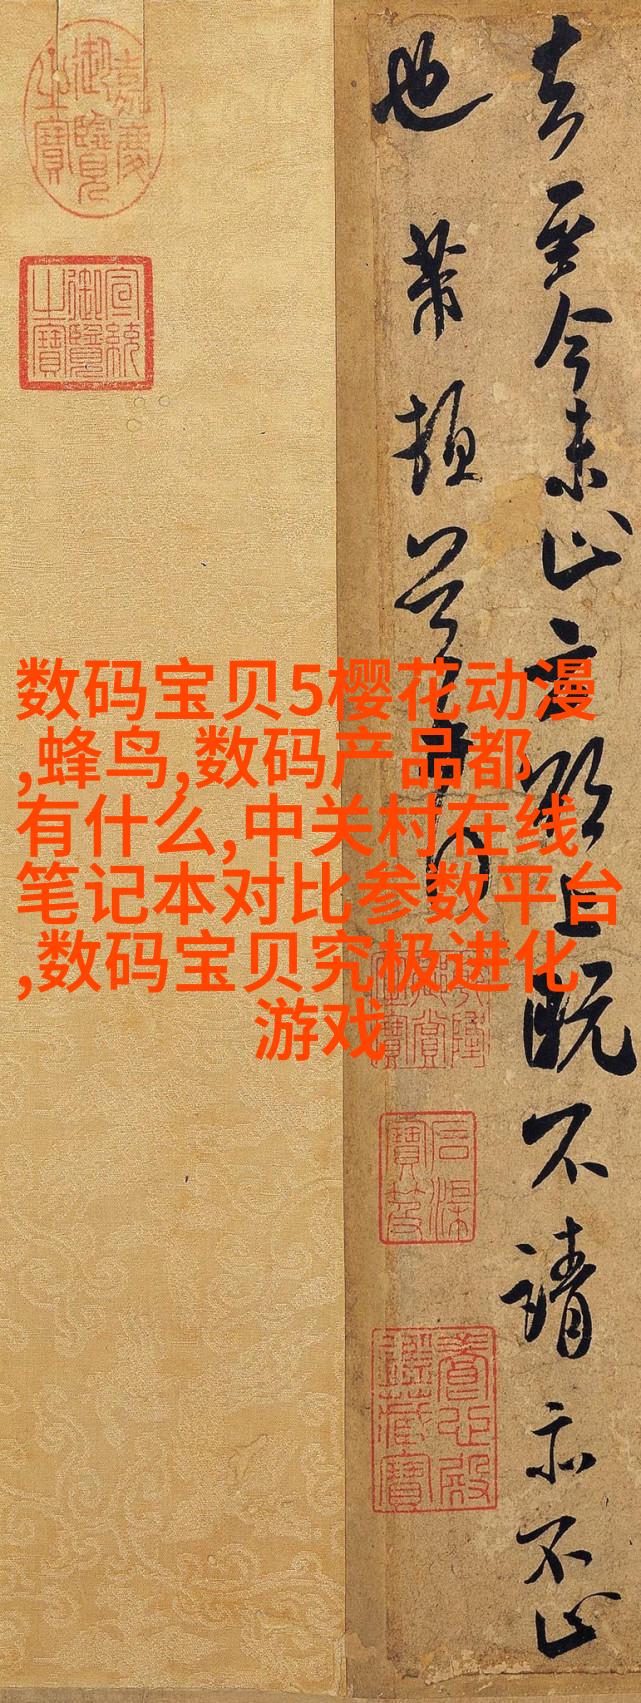 去至今未止亦欲上既不請亦不止
也芾頓首
嘉慶御覽之寶
宣統御覽之寶
石渠寶笈
養心殿鑑藏寶
数码宝贝5樱花动漫
,蜂鸟,数码产品都
有什么,中关村在线
笔记本对比参数平台
,数码宝贝究极进化
游戏